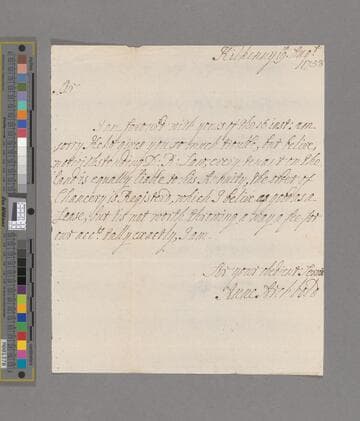 Kilkenny 19 Augt
1738
Sr
I am favourd with yours of the 16 inst: am
sorry He gives you so much trouble, but belive,
notwithstanding Dr. Law, every tenant on the
land is equally liable to his Anuity, the order of
Chancery is Registerd, which I belive as good as a
Lease, but its not worth throwing away a fee for
our acct tally exactly, I am
Sr your obedient Servt
Anne Archbold